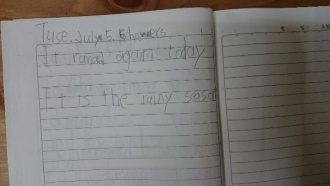 Tuse. July 5 showers
It rained again today
It is the rainy seison